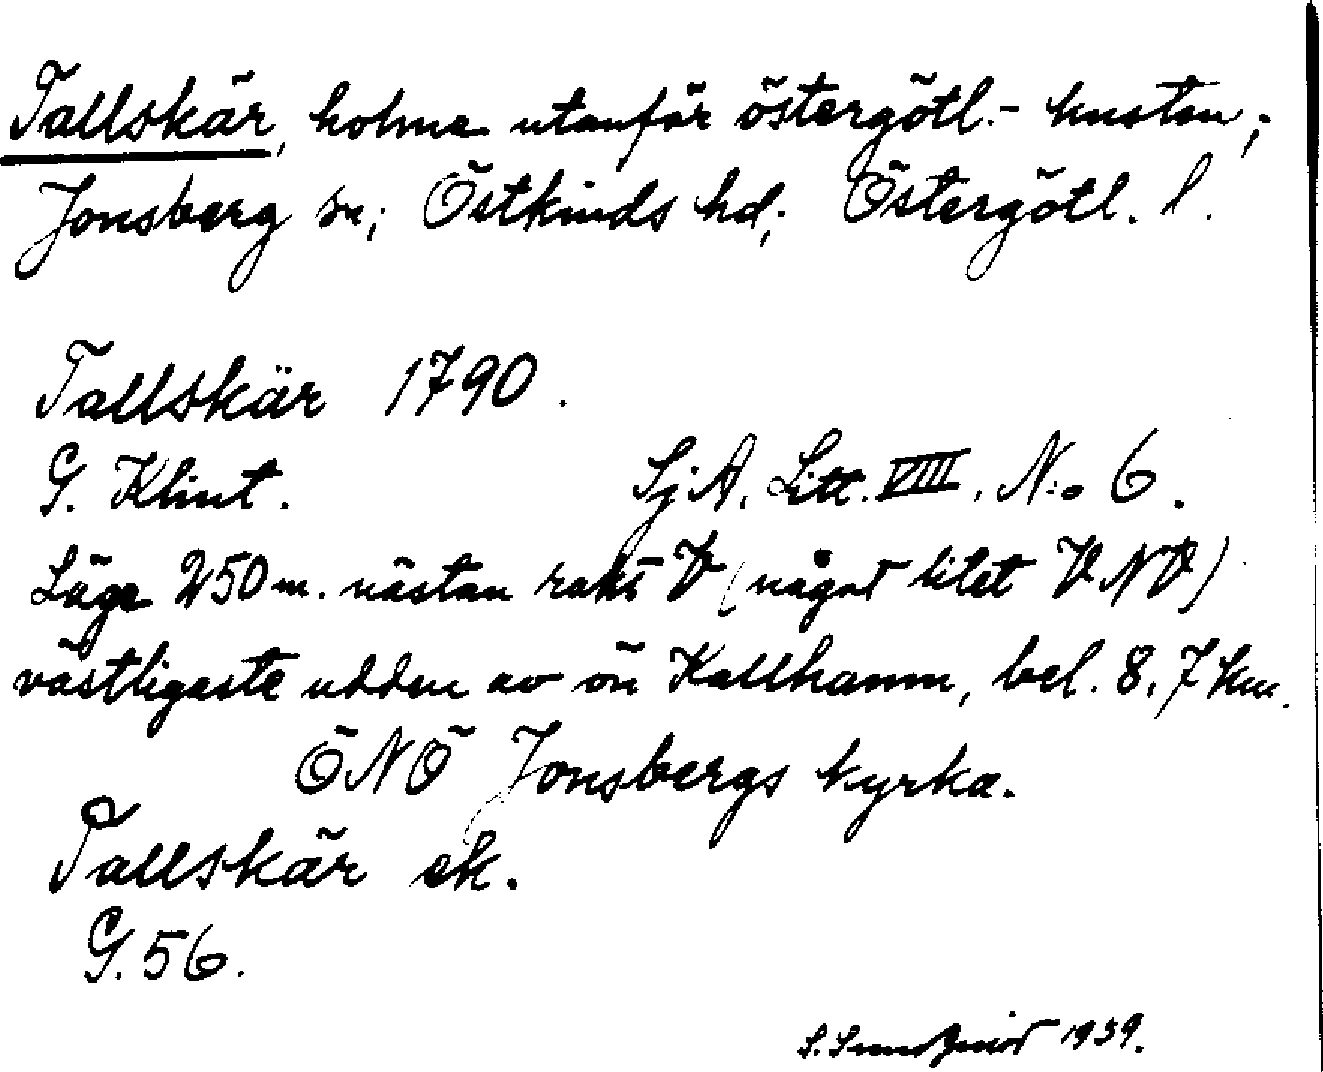 Tallskär, holme utanför östergötl.- kusten;
Jonsberg sn; Östkinds hd; Östergötl. l.
Tallskär 1790.
G. Klint. SjA. Litt. VIII. N:o 6.
Läge 250 m. nästan rakt V (något litet VNV)
västligaste udden av ön Kallhamn, bel. 8,7 km.
ÖNÖ Jonsbergs kyrka.
Tallskär ek.
G. 56.
S. 1939.